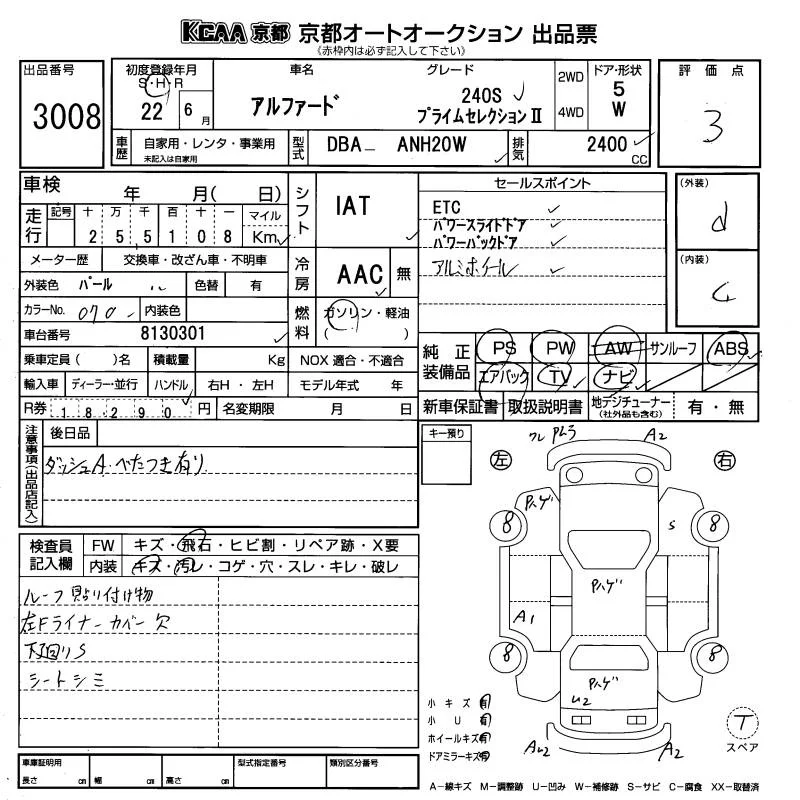 KCAA 京都 京都オートオークション 出品票
《赤枠内は必ず記入して下さい》
出品番号
3008
初度登録年月
S・H・R
22 6 月
車名
アルファード
グレード
240S
プライムセレクションⅡ
2WD
4WD
ドア・形状
5
W
評価点
3
車歴
自家用・レンタ・事業用
未記入は自家用
型式
DBA－ ANH20W
排気
2400
CC
車検 年 月( 日)
走行
記号 十 万 千 百 十 一 マイル
2 5 5 1 0 8 Km
シフト
IAT
セールスポイント
ETC
パワースライドドア
パワーバックドア
アルミホイール
(外装)
d
(内装)
C
メーター歴 交換車・改ざん車・不明車
冷房
AAC 無
外装色 パール 色替 有
カラーNo. 070 内装色
燃料
ガソリン・軽油
( )
車台番号 8130301
純正装備品
PS PW AW サンルーフ ABS
エアバック TV ナビ
乗車定員( )名 積載量 Kg NOX 適合・不適合
輸入車 ディーラー・並行 ハンドル 右H・左H モデル年式 年
R券 18290 円 名変期限 月 日
新車保証書 取扱説明書 地デジチューナー
(社外品も含む)
有・無
注意事項(出品店記入)
後日品
ダッシュA・べたつき有り
キー預り
左
右
フレPムラ
A2
Pハゲ
S
8
8
Pハゲ
A1
8
8
Pハゲ
U2
AU2
A2
検査員記入欄
FW キズ・飛石・ヒビ割・リペア跡・X要
内装 キズ・汚レ・コゲ・穴・スレ・キレ・破レ
ルーフ貼り付け物
左Fライナーカバー欠
下回りS
シートシミ
小キズ有
小U有
ホイールキズ有
ドアミラーキズ有
T
スペア
車庫証明用
長さ cm 幅 cm 高さ cm
型式指定番号
類別区分番号
A－線キズ M－調整跡 U－凹み W－補修跡 S－サビ C－腐食 XX－取替済